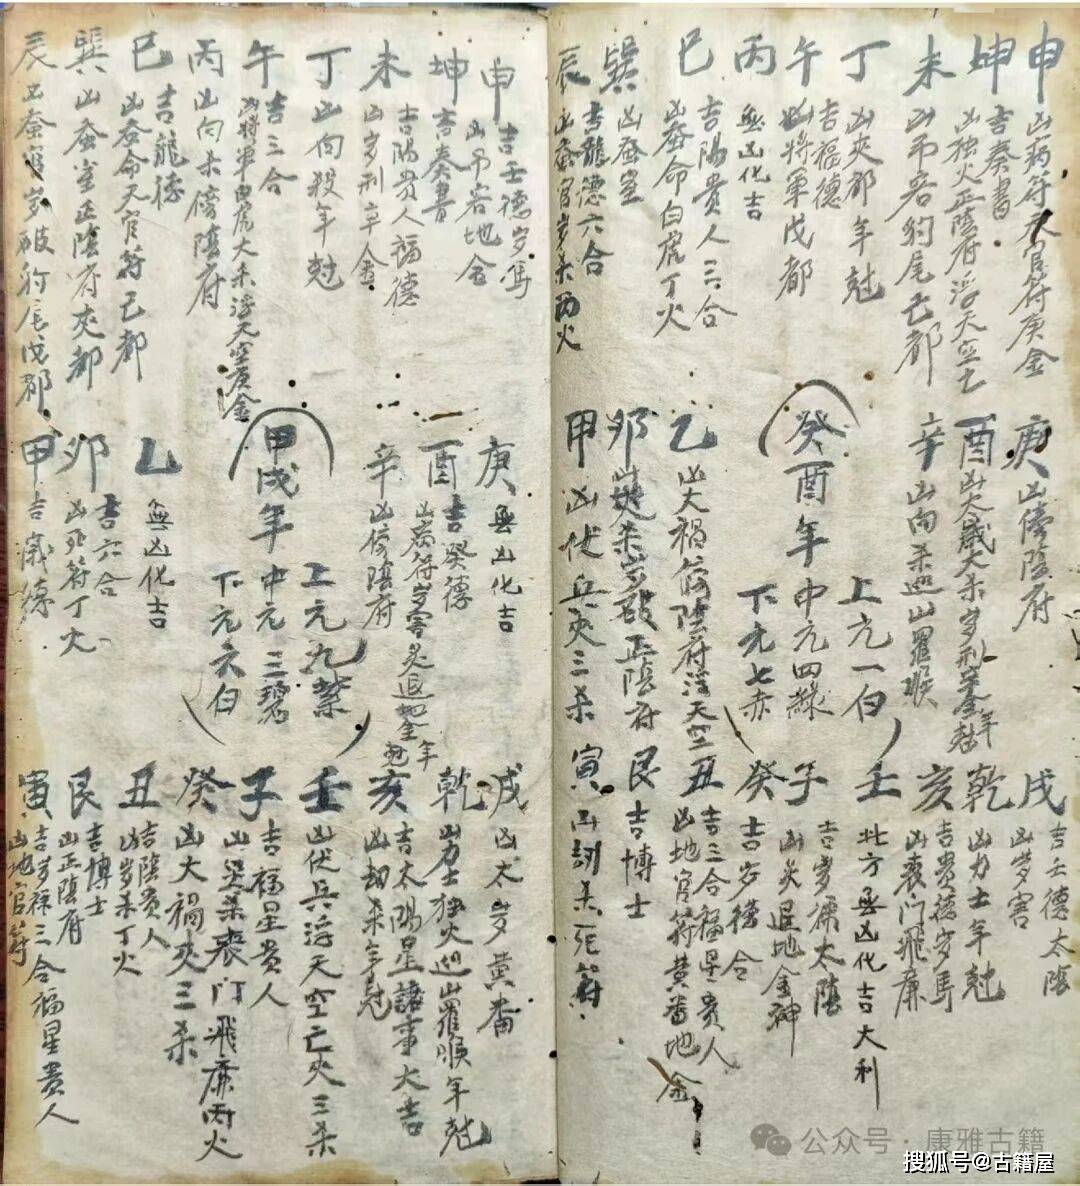 申 凶病符天官符庚金
坤 吉奏書
凶独火正陰府浮天空亡
未 凶吊客豹尾己都
丁 凶夾都年尅
午 吉福德
凶將軍戊都
丙 無凶化吉
巳 吉陽貴人三合
凶蚕命白虎丁火
巽 凶蚕室
辰 吉龍德六合
凶蚕官歲杀丙火
庚 凶傍陰府
酉 凶太歲大杀歲刑辛金年尅
辛 凶向杀巡山羅睺
癸酉年
上元一白
中元四綠
下元七赤
乙 凶大禍傍陰府浮天空
卯 凶災杀歲破正陰府
甲 凶伏兵夾三杀
戌 吉壬德太陰
凶歲害
乾 凶力士年尅
亥 吉貴德歲馬
凶喪門飛廉
壬 北方無凶化吉大利
子 吉歲祿太陰
凶炙退地金神
癸 吉歲德合
丑 吉三合福星貴人
凶地官符黃番地金
艮 吉博士
寅 凶刼杀死符
申 吉壬德歲馬
凶吊客地金
坤 吉奏書
未 吉陽貴人福德
凶歲刑辛金
丁 凶向殺年尅
午 吉三合
凶將軍白虎大杀浮天空庚金
丙 凶向杀傍陰府
巳 吉龍德
凶蚕命天官符己都
巽 凶蚕室正陰府夾都
辰 凶蚕官歲破豹尾戊都
庚 無凶化吉
酉 吉癸德
凶病符歲害炙退地金年尅
辛 凶傍陰府
甲戌年
上元九紫
中元三碧
下元六白
乙 無凶化吉
卯 吉六合
凶死符丁火
甲 吉歲德
戌 凶太歲黃番
乾 凶力士独火巡山羅睺年尅
亥 吉太陽星諸事大吉
凶劫杀年尅
壬 凶伏兵浮天空亡夾三杀
子 吉福星貴人
凶災杀喪門飛廉丙火
癸 凶大禍夾三杀
丑 吉陰貴人
凶歲杀丁火
艮 吉博士
凶正陰府
寅 吉歲祿三合福星貴人
凶地官符
公众号·康雅古籍
搜狐号@古籍屋